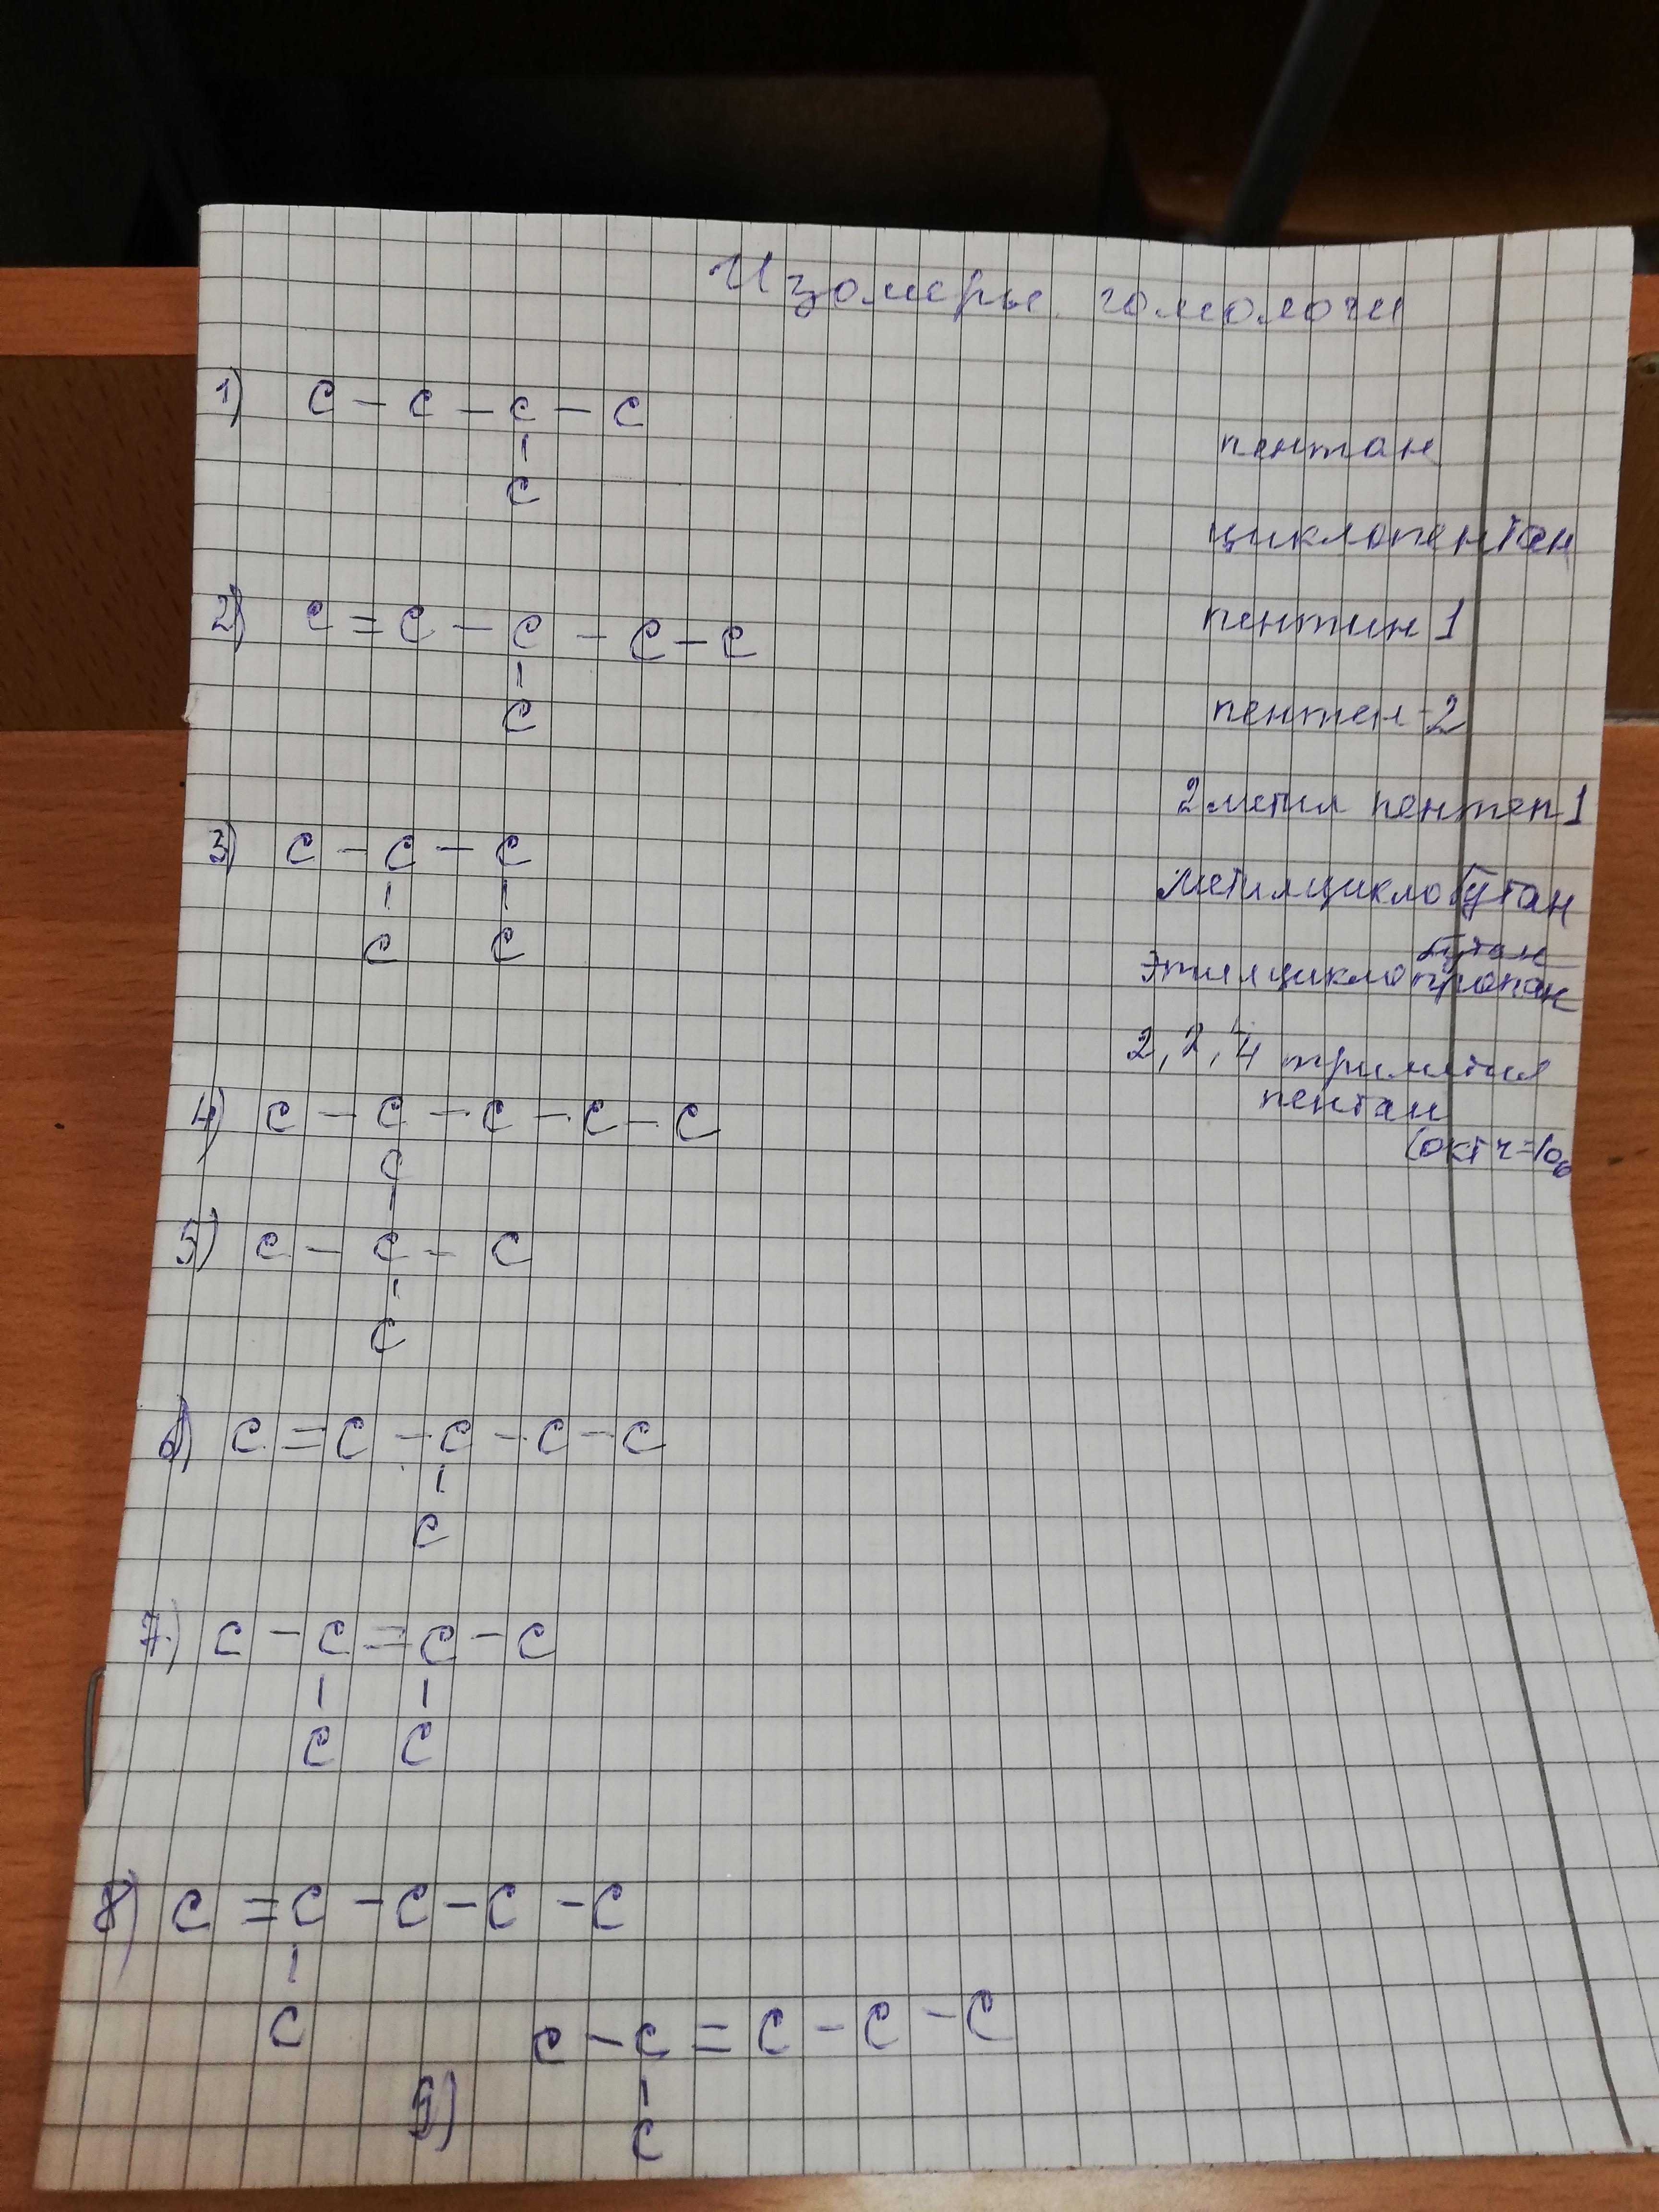 Изомеры гомологи
1) С – С – С – С
|
С
пентан
циклопентан
2) С = С – С – С – С
|
С
пентин 1
пентен-2
2 метил пентен 1
3) С – С – С
| |
С С
метилциклобутан
бутан
этилциклопропан
2, 2, 4 триметил
пентан
(окт ч = 100
4) С – С – С – С – С
С
|
5) С – С – С
|
С
6) С = С – С – С – С
|
С
7) С – С = С – С
| |
С С
8) С = С – С – С – С
|
С
С – С = С – С – С
9) |
С